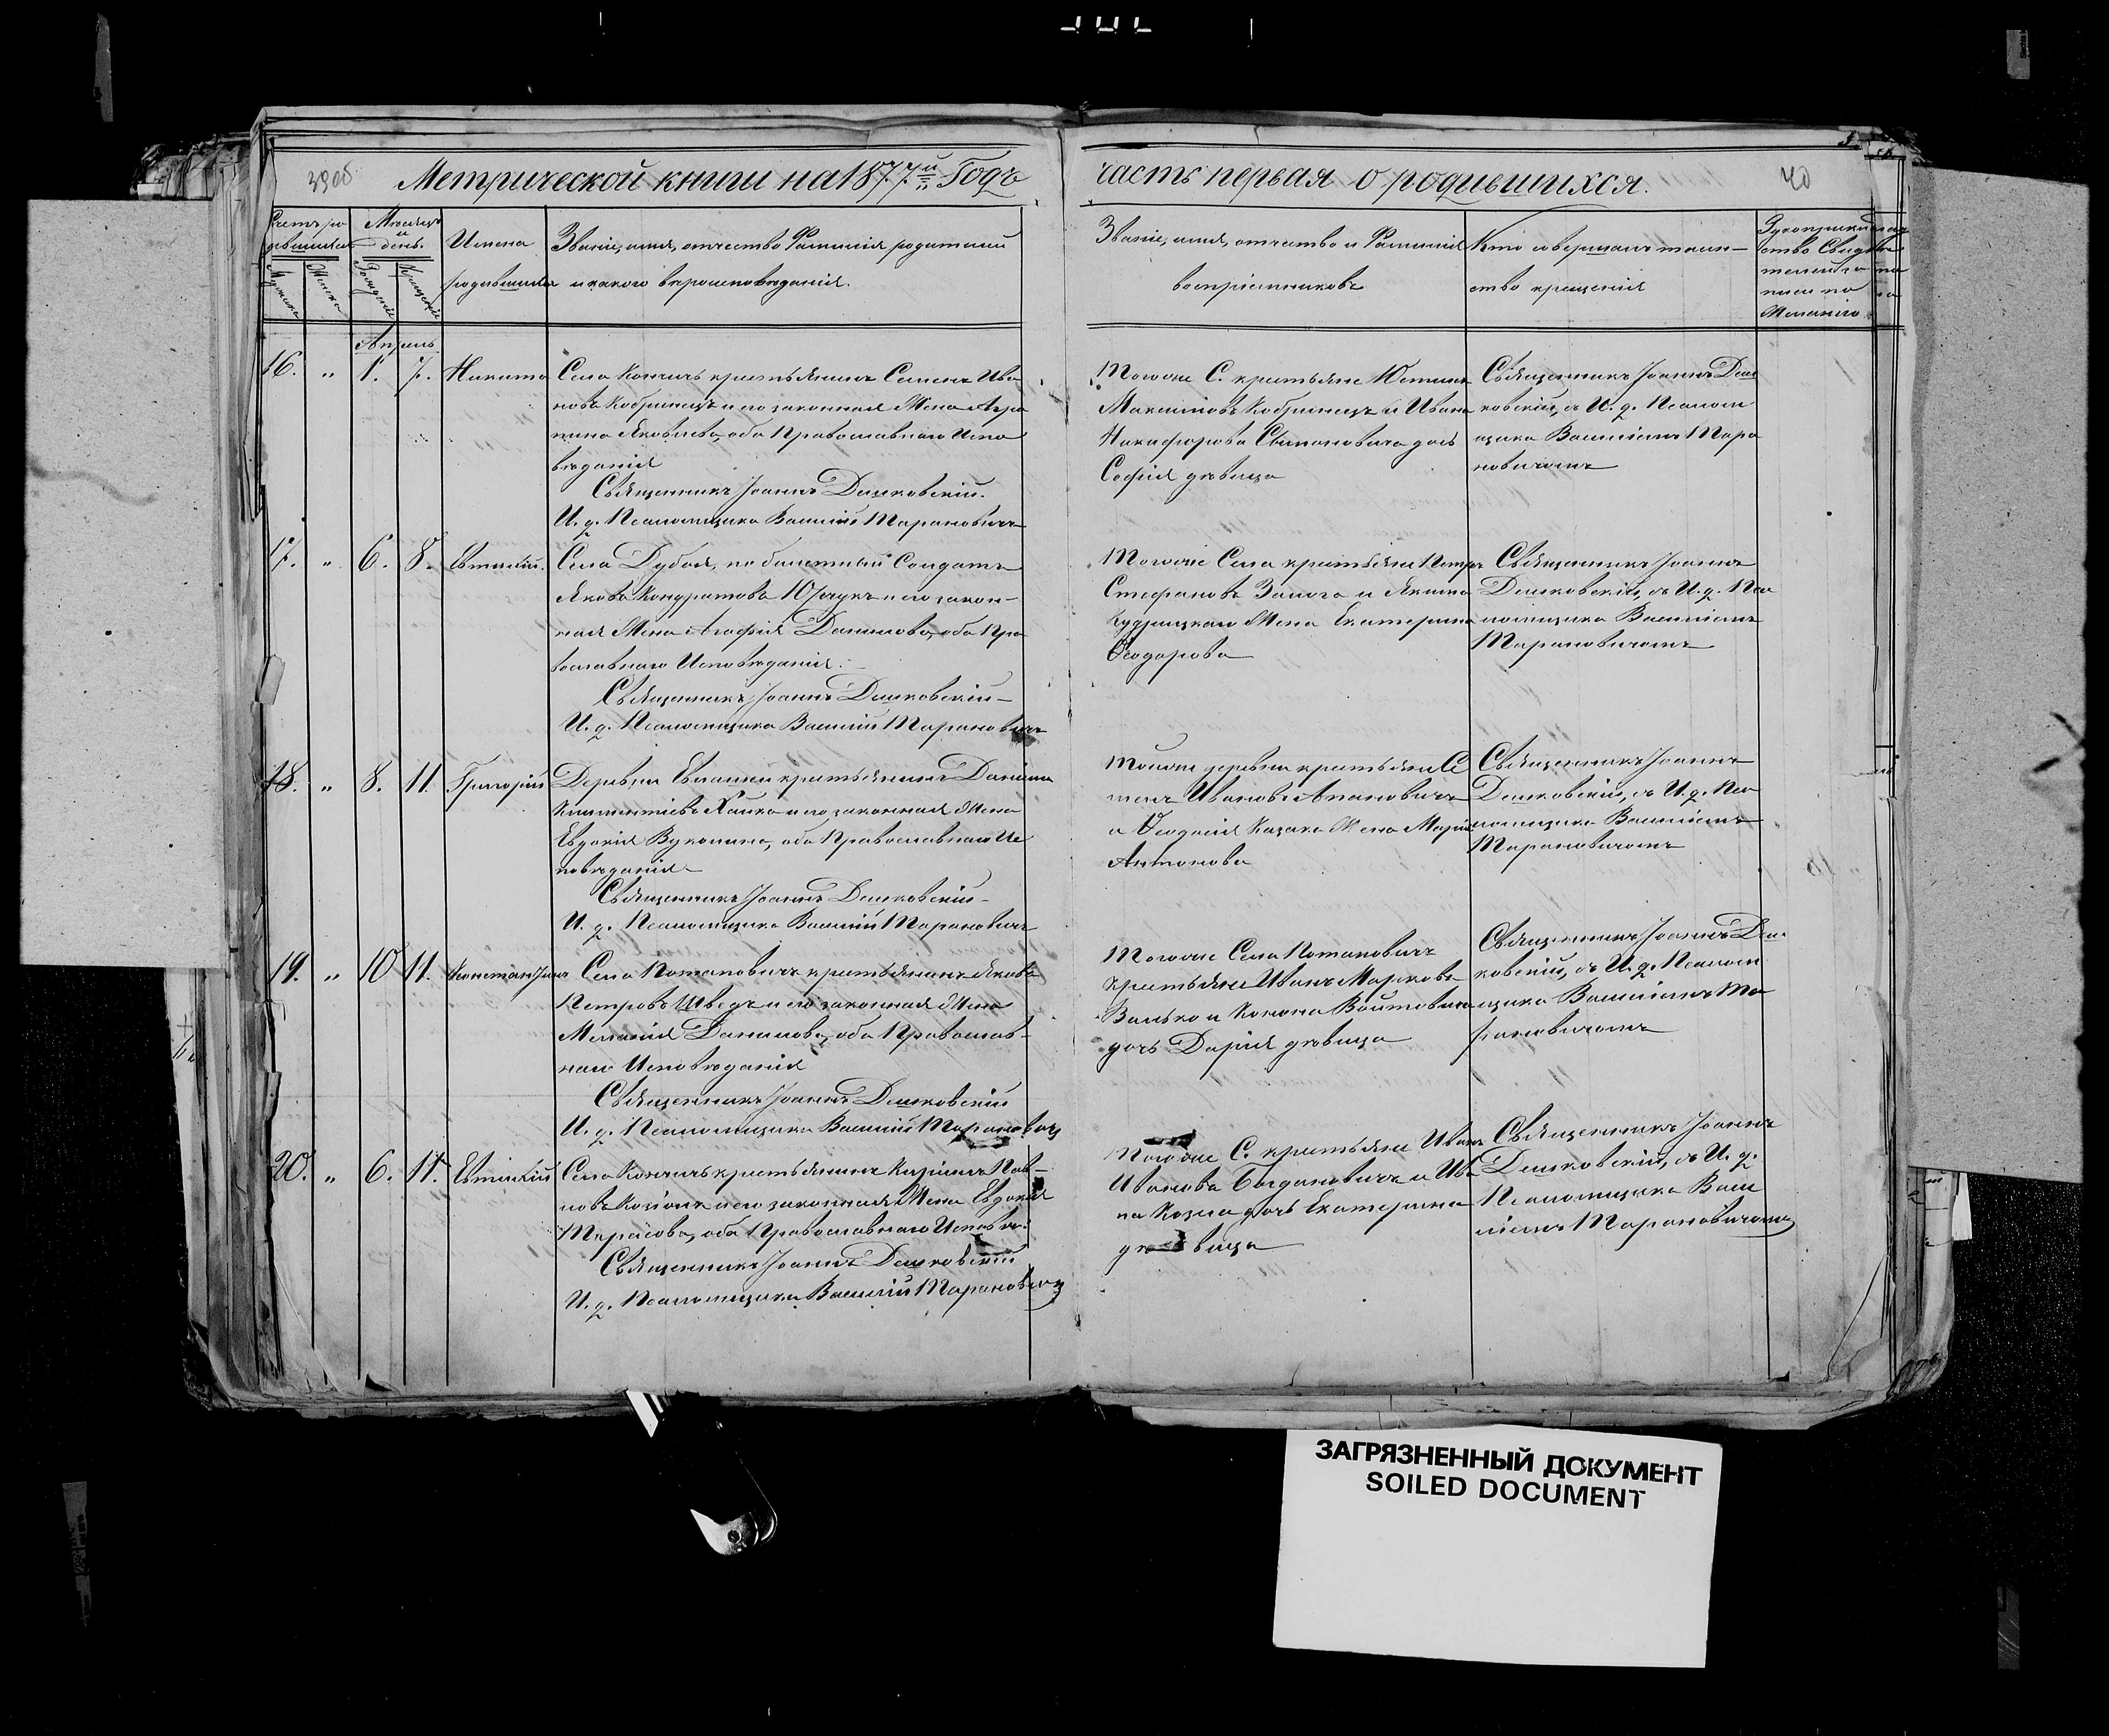 39об
Метрической книги на 1877й Годъ
часть первая о родившихся.
40
Счетъ ро
дившихся
Мѣсяцъ
и
день.
Мужска
Женска
Рожденія
Крещенія
Имена
родившихся
Званіе, имя, отчество Фамилія родителей
и какого вѣроисповѣданія.
Званіе, имя, отчество и Фамилія
воспріемниковъ
Кто совершалъ таин-
ство крещенія
Рукоприклад
ство Свидѣ
телей за
писи по
Желанію
Апрель
16. „ 1. 7. Никита
Села Кончичъ крестьянинъ Семенъ Ива
новъ Кобринецъ и его законная Жена Агри
пина Яковлева, оба Православнаго Испо
вѣданія
Священникъ Іоаннъ Дашковскій.
И. д. Псаломщика Василій Тарановичъ
Тогоже С. крестьяне Юстинъ
Максимовъ Кобринецъ и Ивана
Никифорова Симоновича дочь
Софія дѣвица
Священникъ Іоаннъ Даш
ковскій, съ И. д. Псалом
щика Василіемъ Тара
новичомъ
17. „ 6. 8. Евтихій.
Села Дубоя, по билетный Солдатъ
Яковъ Кондратовъ Юрчукъ и его закон-
ная Жена Агафія Данилова, оба Пра
вославнаго Исповѣданія.
Священникъ Іоаннъ Дашковскій
И. д. Псаломщика Василій Тарановичъ
Тогоже Села крестьяне Петръ
Стефановъ Залога и Якима
Кудрицкаго Жена Екатерина
Ѳеодорова
Священникъ Іоаннъ
Дашковскій, съ И. д. Пса
ломщика Василіемъ
Тарановичомъ
18. „ 8. 11. Григорій
Деревни Евлашеи крестьянинъ Даніилъ
Климентіевъ Хомка и его законная Жена
Евдокія Вуколина, оба Православнаго Ис
повѣданія
Священникъ Іоаннъ Дашковскій
И. д. Псаломщика Василій Тарановичъ
Тогоже деревни крестьяни Се
менъ Ивановъ Апановичъ
и Ѳеодосія Казака Жена Марія
Антонова
Священникъ Іоаннъ
Дашковскій, съ И. д. Пса
ломщика Василіемъ
Тарановичомъ
19. „ 10 11. Константинъ
Села Потаповичъ крестьянинъ Яковъ
Петровъ Шведъ и его законная Жена
Меланія Данилова, оба Православ-
наго Исповѣданія
Священникъ Іоаннъ Дашковскій
И. д. Псаломщика Василій Тарановичъ
Тогоже Села Потаповичъ
крестьяне Иванъ Марковъ
Валько и Конона Войтовича
дочь Дарія дѣвица
Священникъ Іоаннъ Даш
ковскій, съ И. д. Псалом
щика Василіемъ Та
рановичомъ
20. „ 6. 17. Евтихій
Села Кончичъ крестьянинъ Киріилъ Пав-
ловъ Козіонъ и его законная Жена Евдокія
Тарасова, оба Православнаго Исповѣ.
Священникъ Іоаннъ Дашковскій
И. д. Псаломщика Василій Тарановичъ
Тогоже С. крестьяне Иванъ
Ивановъ Богдановичъ и Ива
на Козла дочь Екатерина
дѣвица
Священникъ Іоаннъ
Дашковскій, съ И. д.
Псаломщика Васи
ліемъ Тарановичомъ
ЗАГРЯЗНЕННЫЙ ДОКУМЕНТ
SOILED DOCUMENT